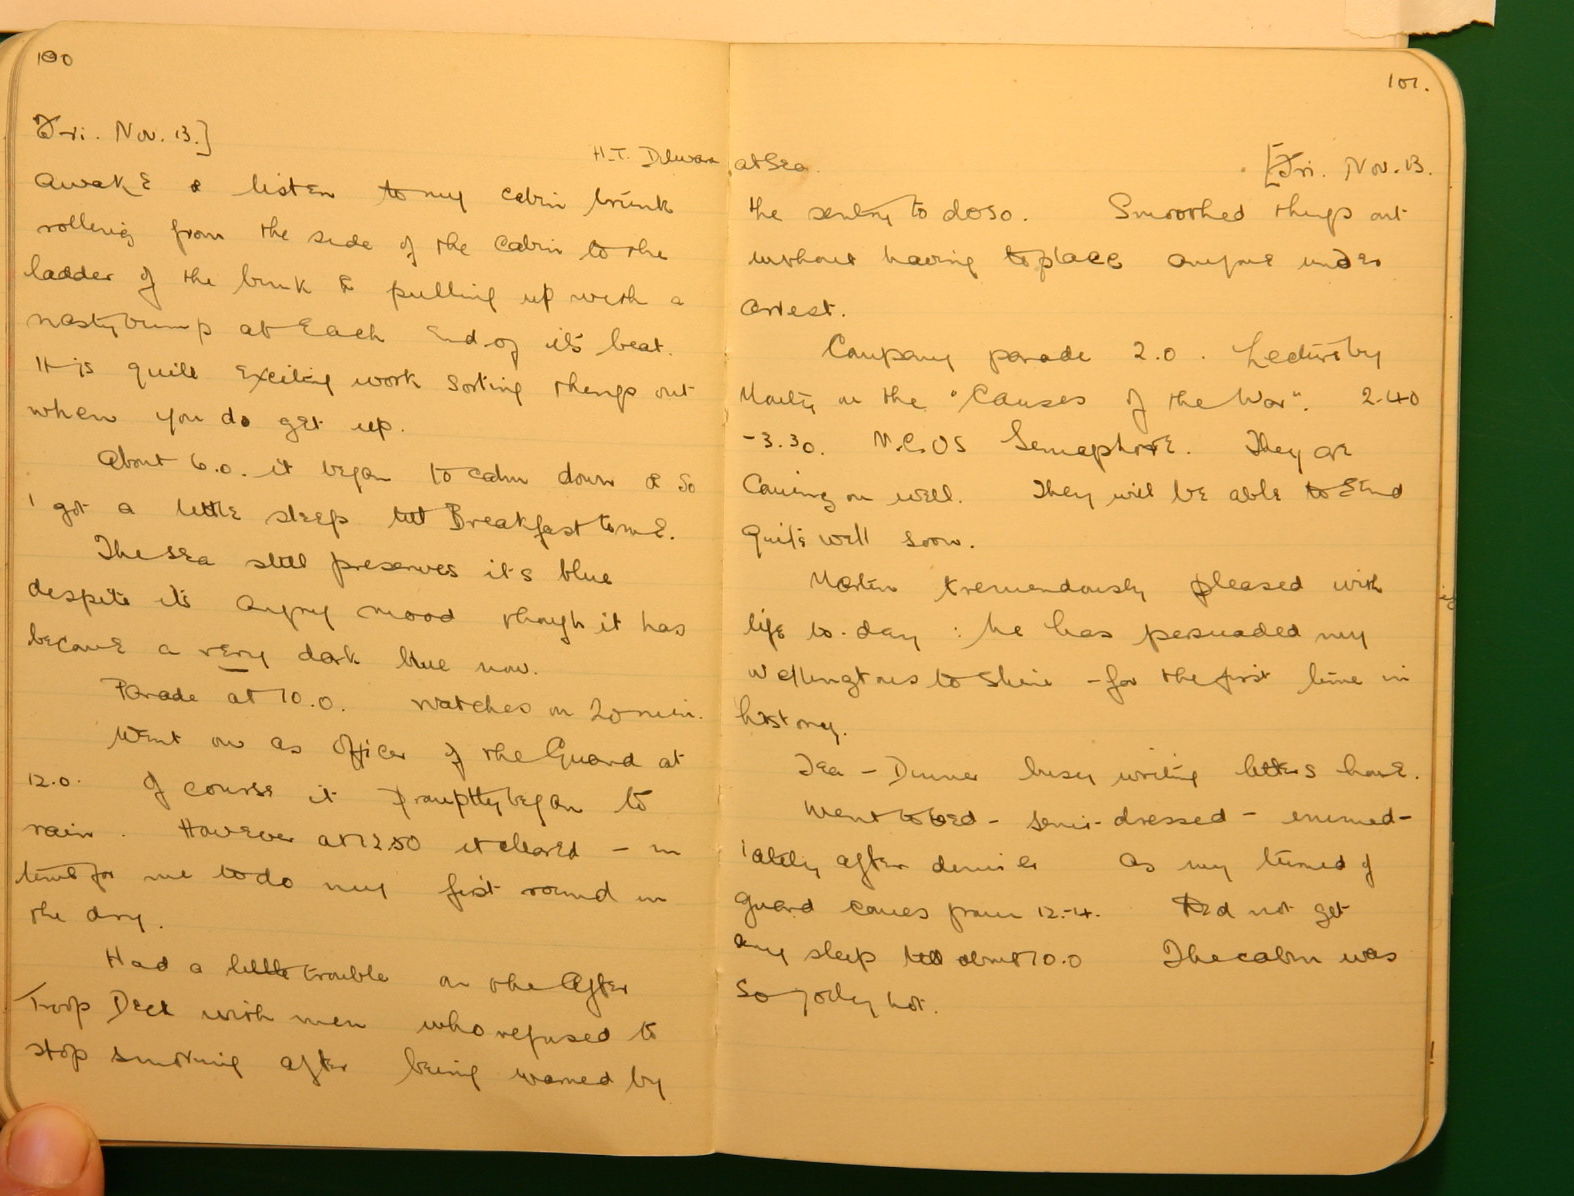 100
Fri. Nov. 13.]
H.T. Dilwara
awake & listen to my cabin trunk
rolling from the side of the cabin to the
ladder of the bunk & pulling up with a
nasty bump at each end of it's beat.
It is quite exciting work sorting things out
when you do get up.
About 6.0. it began to calm down & so
I got a little sleep till Breakfast time.
The sea still preserves it's blue
despite its angry mood though it has
become a very dark blue now.
Parade at 10.0. Watches on 20 min.
Went on as Officer of the Guard at
12.0. Of course it promptly began to
rain. However at 12.50 it cleared – in
time for me to do my first round in
the dry.
Had a little trouble on the After
Troop Deck with men who refused to
stop smoking after being warned by
101.
at Sea.
[Fri. Nov. 13.
the sentry to do so. Smoothed things out
without having to place anyone under
arrest.
Company parade 2.0. Lecture by
Martin on the "Causes of the War". 2.40
-3.30. N.C.OS Semaphore. They are
Coming on well. They will be able to send
quite well soon.
Martin tremendously pleased with
life to-day : he has persuaded my
wellingtons to shine – for the first time in
history.
Tea – Dinner busy writing letters home.
Went to bed – semi-dressed – immed-
iately after dinner as my turn of
guard comes from 12-4. Did not get
any sleep till about 10.0 The cabin was
so jolly hot.